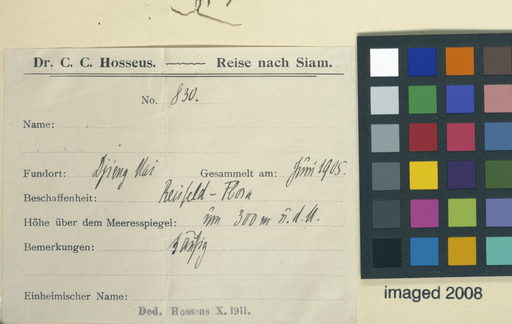 Dr. C. C. Hosseus. Reise nach Siam.
No. 830.
Name:
Fundort: Djieng Mai Gesammelt am: Juni 1905.
Beschaffenheit: Reisfeld - Flora
Höhe über dem Meeresspiegel: um 300 m ü. d. M.
Bemerkungen: häufig
Einheimischer Name:
Ded. Hosseus X. 1911.
imaged 2008